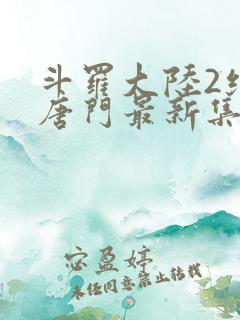 斗羅大陸2
唐門最新集
宓盈婷
未任同意禁止转载